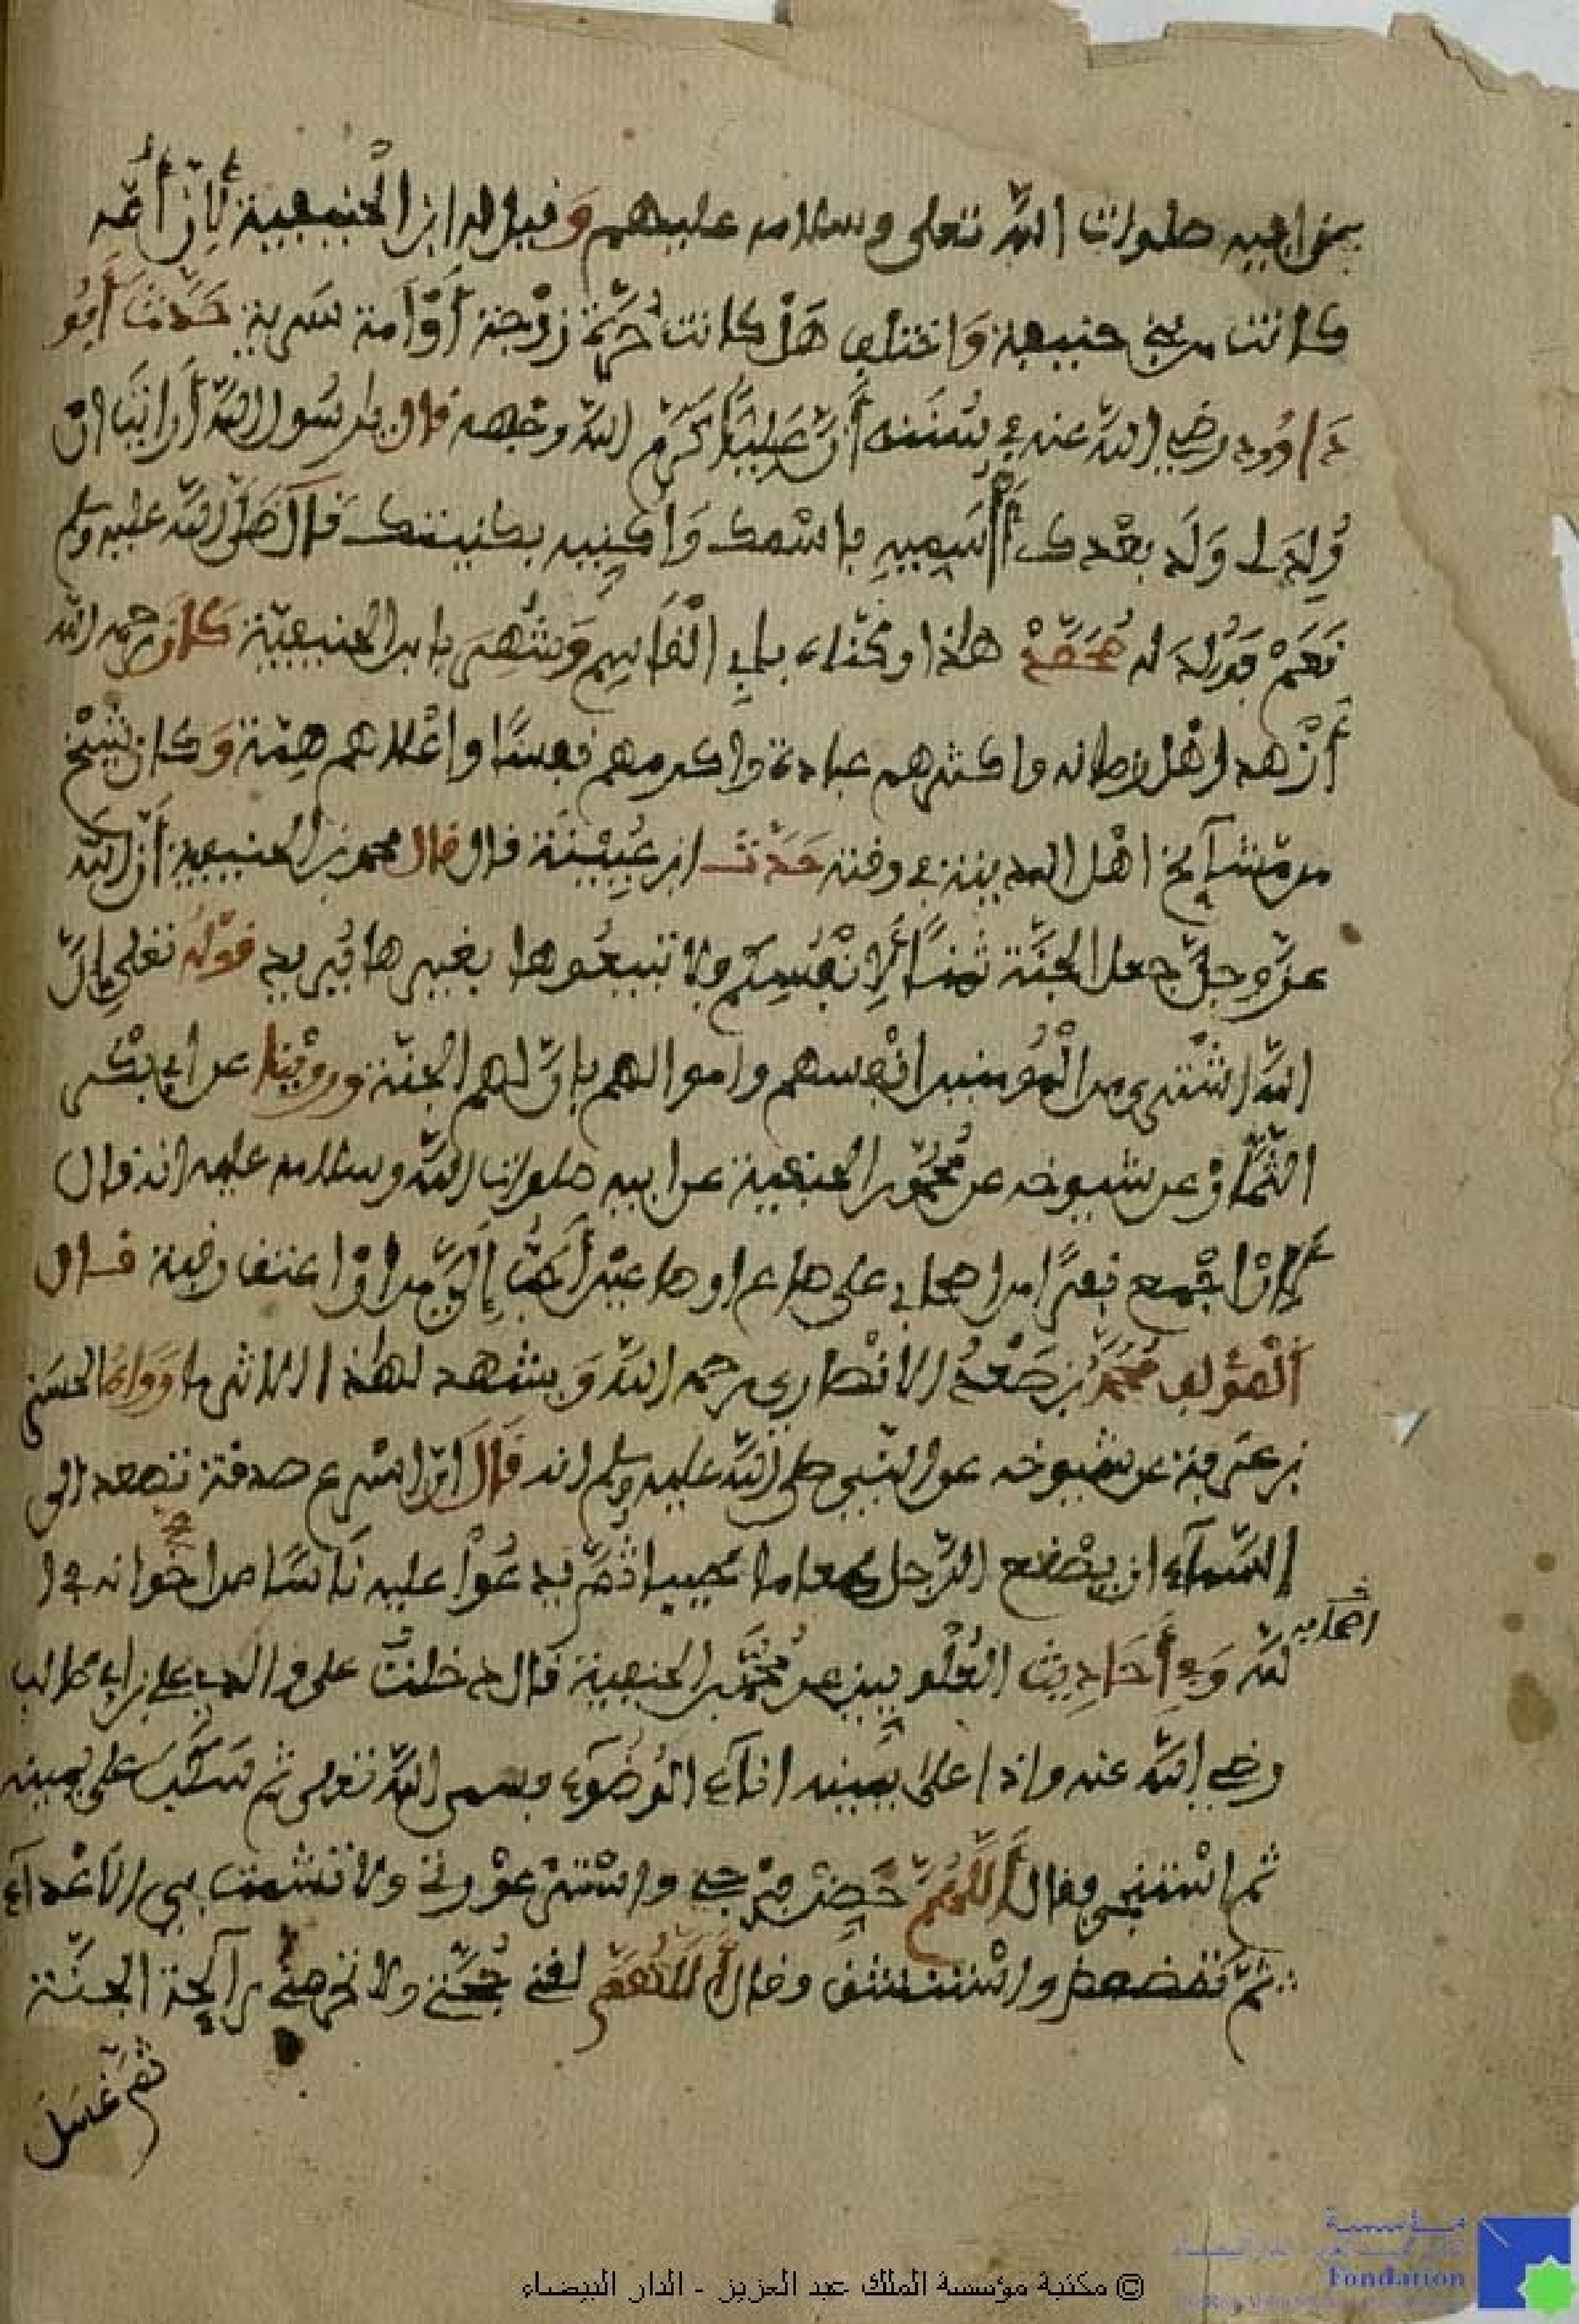 صلوات الله تعلى وسلامه عليهم وقيل له ابن الحنيفية لأن أمه
كانت من بني حنيفة وَاختلف هَلْ كانت حُرَّة زوْجة أوْ أمة سرية حَدَّثَ أبُو
دَاوُود رضي الله عنه في سُننه أنَّ عَلِيّاً كَرَّم الله وجهه قال يا رسُول الله أرانيَا ان
وُلِدَ لي وَلَد بعْدك أسَمِيهِ باسْمك وَأكنيه بكنيتك قال صَلَّى الله عليه وسلم
نَعَمْ فَوُلِدَ له مُحَمَّدْ هاذا وكنّاه بابي الْقَاسِم وَشُهِرَ بابن الحنيفيّة كَانَ رحمه الله
أزْهد أهْل زمانه واكثرهم عبادة واكرمهم نفسًا واعْلاهم هِمّة وَكان شيْخ
من مَّشآيخ اهْل المدينة في وقته حَدَّثَ ابن عُيَيْنَة قال قال محمد بن الحنيفية أنّ الله
عزّ وجلّ جعل الجنَّة ثمنًا لِأنْفُسِكم ولا تبيعُوها بغيرها يُريد قوْلهُ تعلى إنَّ
الله اشْترى من الْمُومنين انْفسهم واموالهم بأنَّ لهم الجنّة ورويْنا عن ابي بكْر
عن شيوخه عن مُحَمَّد بن الحنفية عن ابيه صلوات الله وسلامه عليه انه قال
لأنْ اجْمع نفرًا من اصحابي على صاع او صاعيْن أحَبُّ إلَيَّ من انْ اعتق رقبة قال
اَلْمُؤلف مُحَمَّدُ بن سَعْدُ الانْصاري رحمه الله وَيشهد لهاذا الاثر ما رَوَاهُ الحسَن
بن عَرفة عن شيوخه عن النبي صلى الله عليه وسلم انه قَالَ انّ اسْرع صدقة تصعد الى
السّمآء ان يصْنع الرّجل طعاما طيبا ثمّ يدعُوْا عليه نَاسًا من اخْوانه في ا
اصحابه
للَّه وَفِي أَحَادِيث العُلْويين عن مُحَمَّد بن الحنفية قال دخلتُ على والدي علي بن ابي طالب
رضي الله عنه واذا على يمينه انآء الوُضُوء فسمى الله تعلى ثم سَكَبَ على يمينه
ثم اسْتنجى وقال اللَّهُمَّ حَصِّن فرْجي واسْتُرْ عوْرتي ولا تشمت بي الاعْدآء
ثمّ تمضمض واسْتنشق وقال اللَّهُمَّ لقني حُجَّتي ولا تحرمني رآيحة الجنَّة
ثم غسَل
© مكتبة مؤسسة الملك عبد العزيز - الدار البيضاء
مؤسسة
Fondation